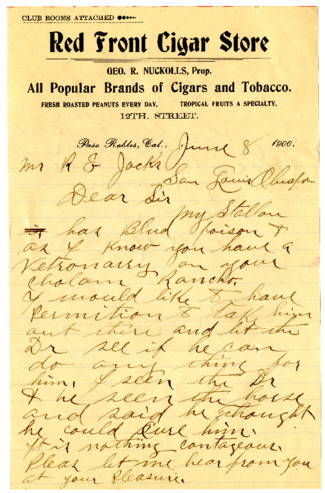 CLUB ROOMS ATTACHED
Red Front Cigar Store
GEO. R. NUCKOLLS, Prop.
All Popular Brands of Cigars and Tobacco.
FRESH ROASTED PEANUTS EVERY DAY. TROPICAL FRUITS A SPECIALTY.
12TH. STREET.
Paso Robles, Cal., June 8 1900.
Mr R E Jacks
San Louis Obispo
Dear Sir
My Stallon
has Blud Poison &
as I know you have a
Vetronarry on your
Cholam Rancho.
I would like to have
Permition to take him
out there and let the
Dr see if he can
do any thing for
him, I seen the Dr
& he seen the horse
and said he thought
he could Cure him.
It is nothing contageous
Pleas let me hear from you
at your Pleasure.